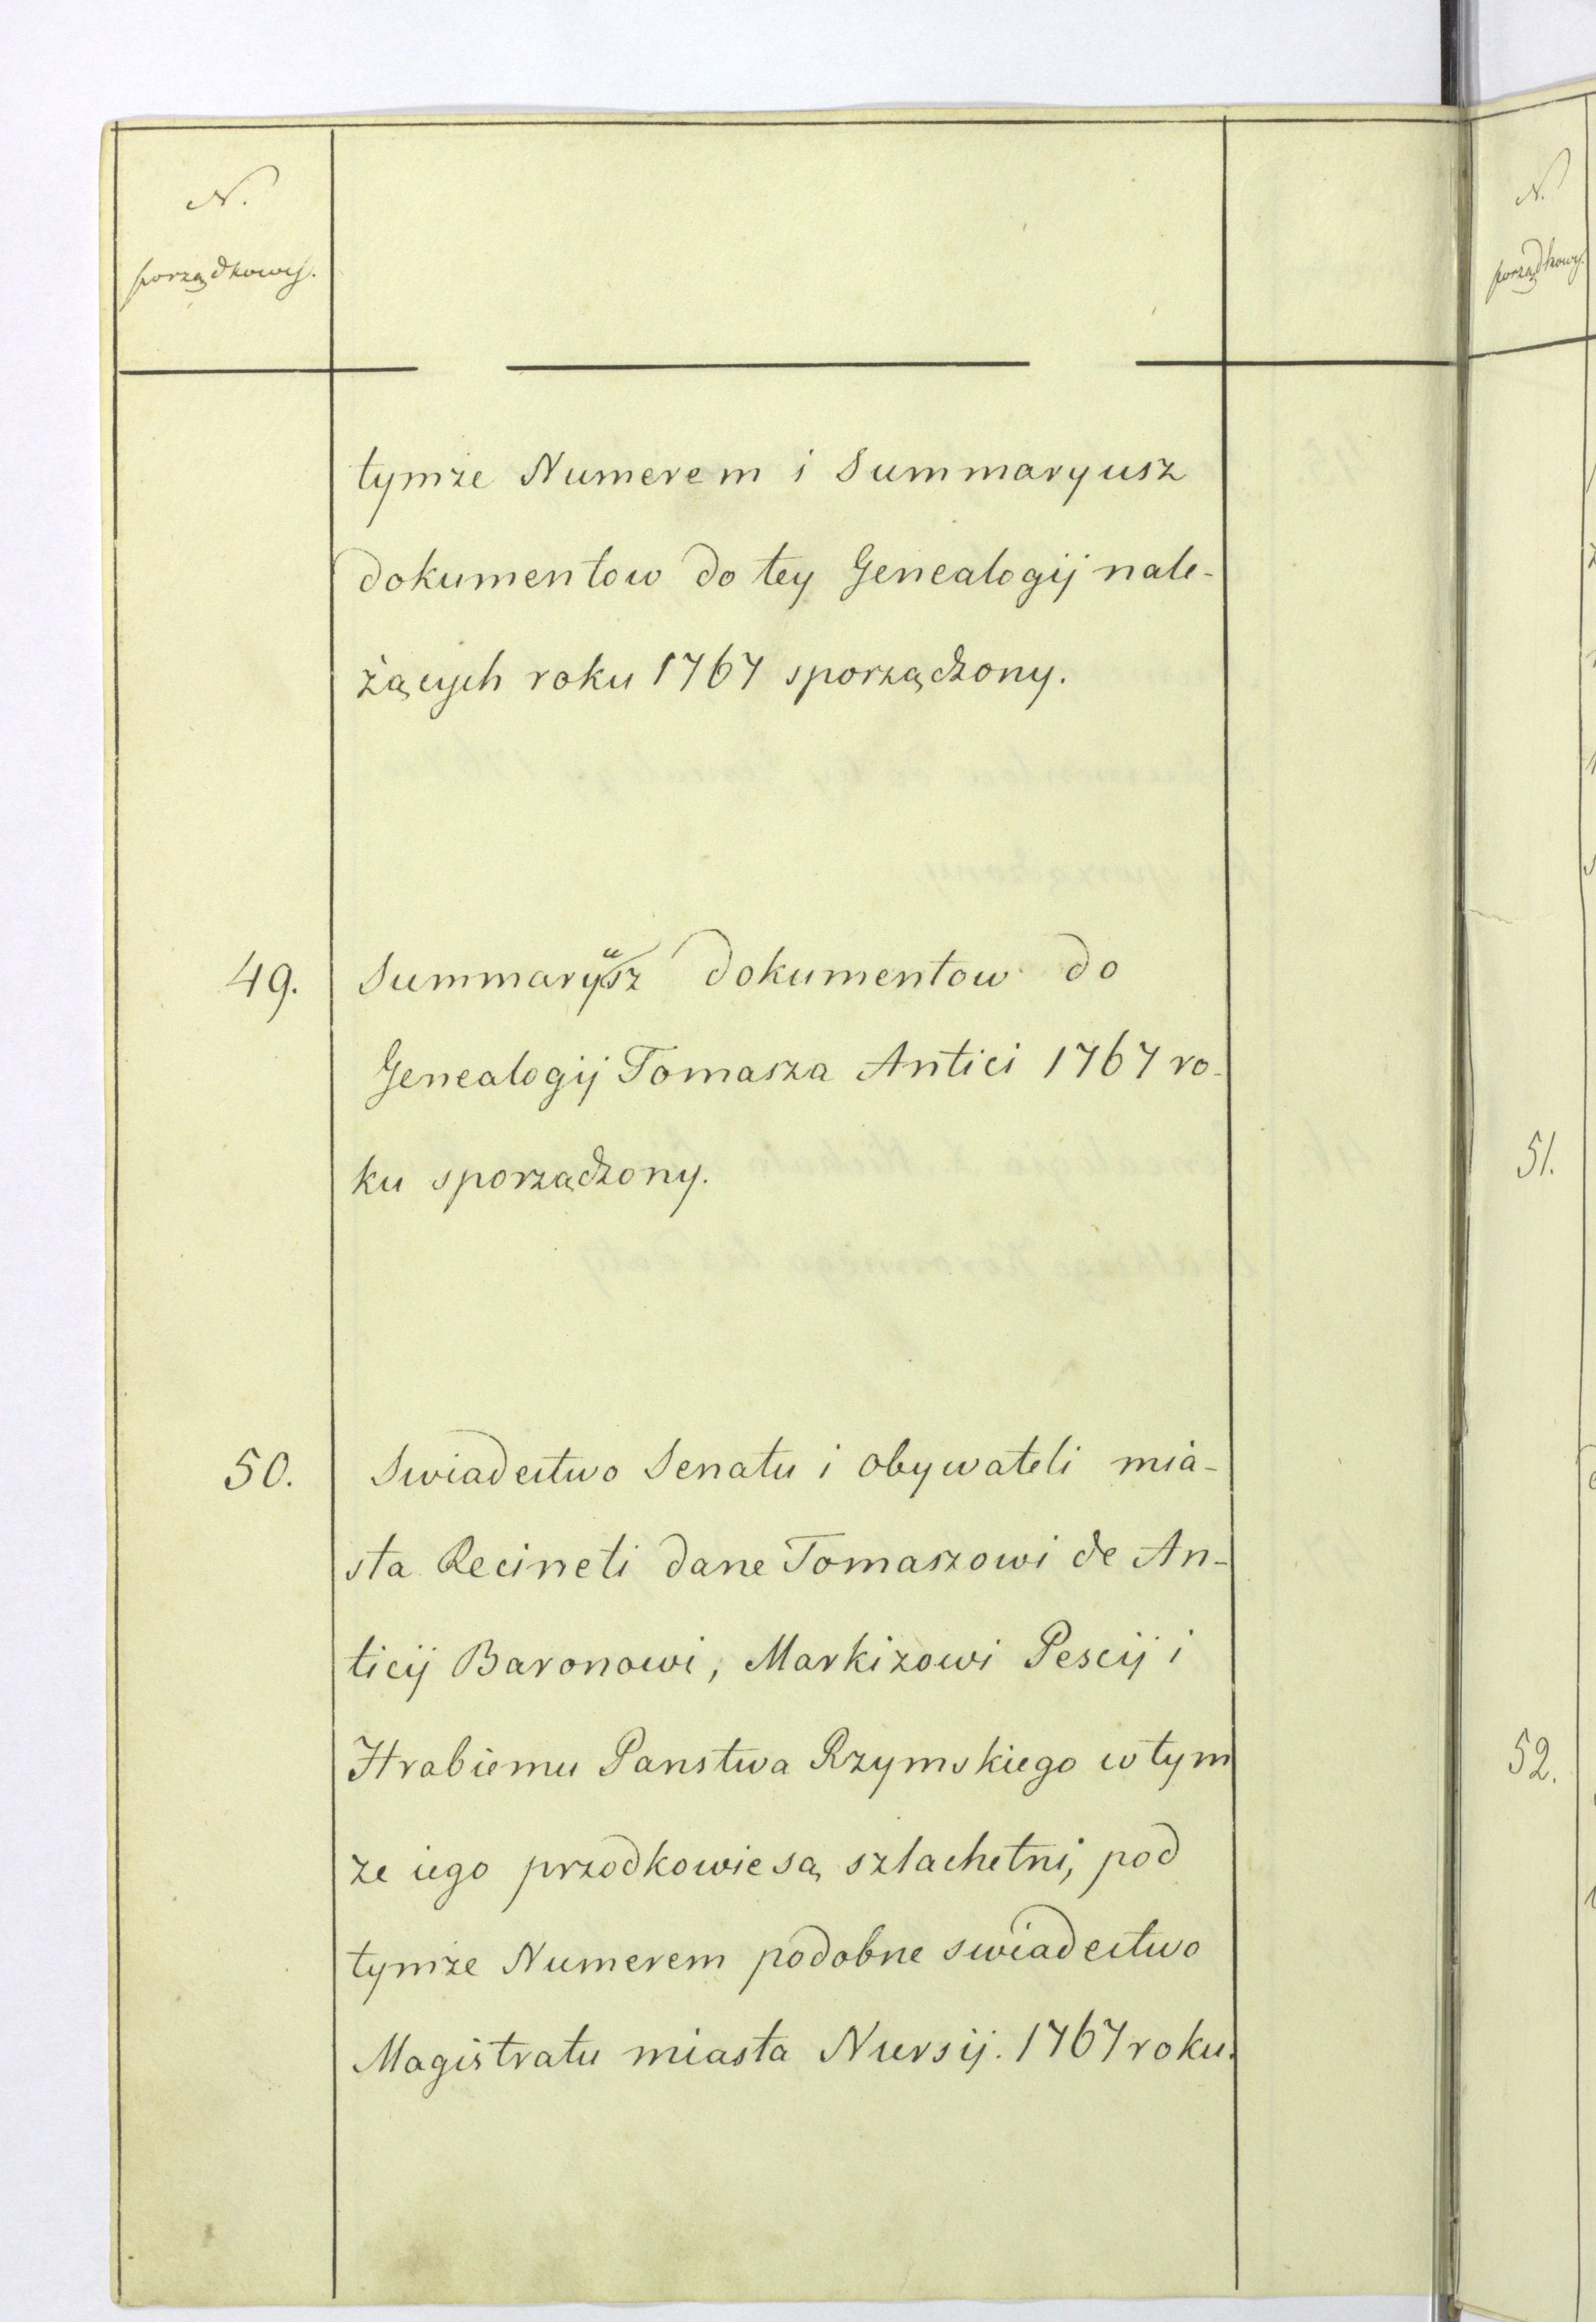 N.
porządkowy.
N.
porządkowy.
tymże Numerem i Summaryusz
dokumentow do tey Genealogij nale-
żących roku 1767 sporządzony.
49. Summaryusz dokumentow do
Genealogij Tomasza Antici 1767 ro-
ku sporządzony.
51.
50. Swiadectwo Senatu i obywateli mia-
sta Recineti dane Tomaszowi de An-
ticij Baronowi, Markizowi Pescij i
Hrabiemu Panstwa Rzymskiego w tym
52.
ze iego przodkowie są szlachetni, pod
tymże Numerem podobne swiadectwo
Magistratu miasta Nursij. 1767 roku.